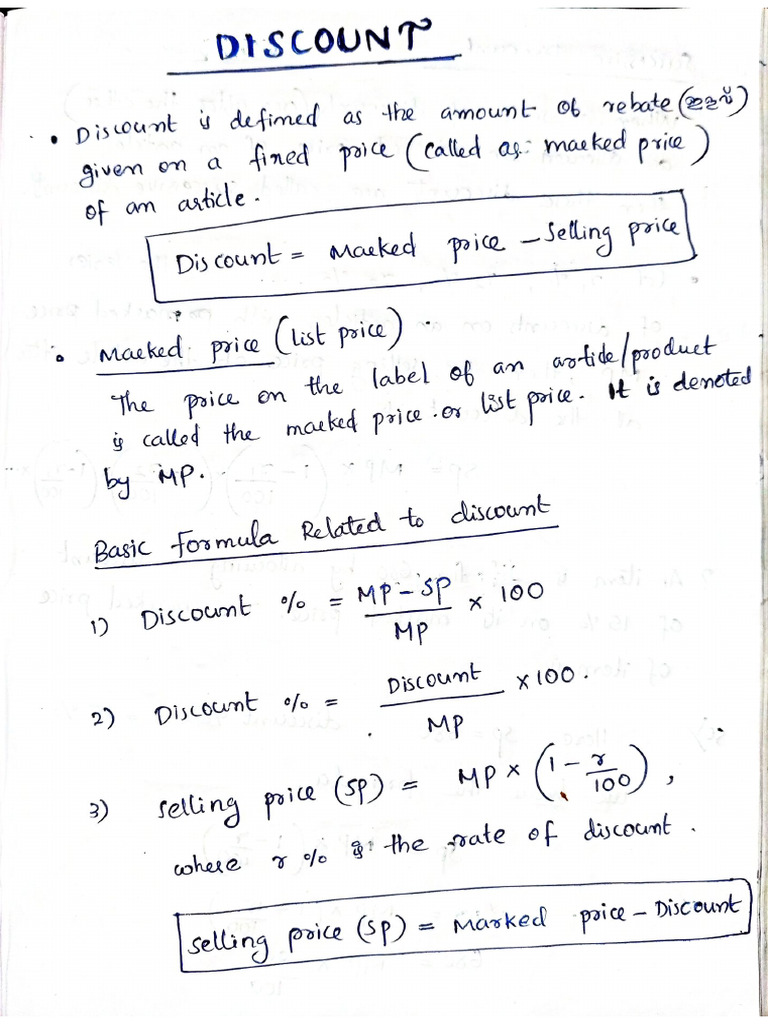 DISCOUNT
• Discount is defined as the amount of rebate
given on a fixed price (called as marked price)
of an article.
Discount = Marked price – Selling price
• Marked price (list price)
The price on the label of an article/product
is called the marked price or list price. It is denoted
by MP.
Basic formula Related to discount
1) Discount % = MP – SP / MP × 100
2) Discount % = Discount / MP × 100.
3) Selling price (SP) = MP × (1 – r/100),
where r % is the rate of discount.
Selling price (SP) = Marked price – Discount